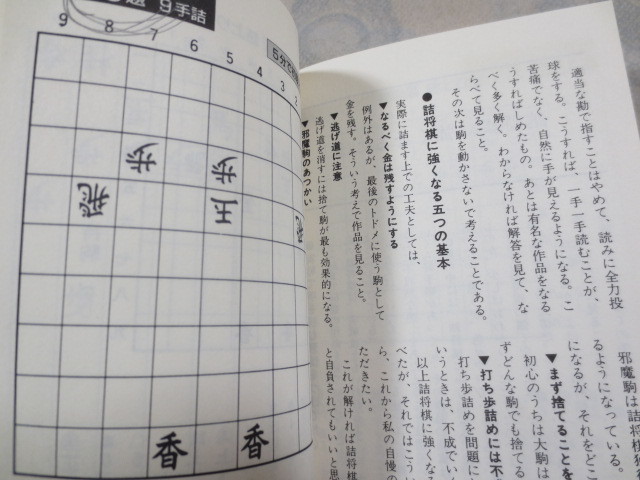 適当な勘で指すことはやめて、読みに全力投
球をする。こうすれば、一手一手読むことが、
苦痛でなく、自然に手が見えるようになる。こ
うすればしめたもの。あとは有名な作品をなる
べく多く解く。わからなければ解答を見て、な
らべて見ること。
その次は駒を動かさないで考えることである。
●詰将棋に強くなる五つの基本
実際に詰ます上での工夫としては、
▼なるべく金は残すようにする
例外はあるが、最後のトドメに使う駒として
金を残す。そういう考えで作品を見ること。
▼逃げ道に注意
逃げ道を消すには捨て駒が最も効果的になる。
▼邪魔駒のあつかい
邪魔駒は詰将棋
るようになっている。
になるが、それをどこ
▼まず捨てることを
初心のうちは大駒は
ずどんな駒でも捨てる
▼打ち歩詰めには不
打ち歩詰めを問題に
いうときは、不成でい
以上詰将棋に強くな
べたが、それではこうい
ら、これから私の自慢の
ただきたい。
これが解ければ詰将棋
と自負されてもいいと思
題 9手詰
5分で
9 8 7 6 5 4 3 2
歩
歩
王
香
香